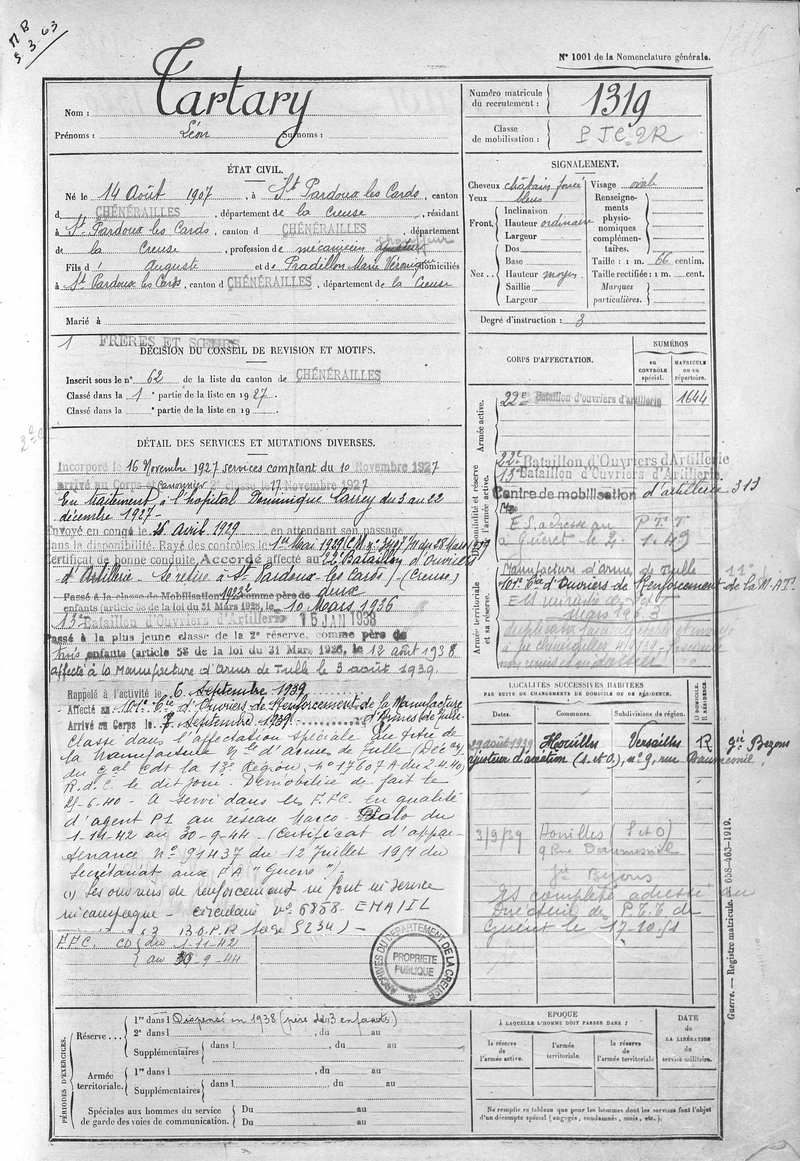 5.3.63
N° 1001 de la Nomenclature générale.
Nom : Tartary
Prénoms : Léon Surnoms :
Numéro matricule du recrutement : 1319
Classe de mobilisation :
ÉTAT CIVIL.
Né le 14 Août 1907, à St Pardoux les Cards, canton
d CHÉNÉRAILLES, département de la Creuse, résidant
à St Pardoux les Cards, canton d CHÉNÉRAILLES, département
de la Creuse, profession de mécanicien
Fils d' Auguste et de Pradillon Marie Véronique domiciliés
à St Pardoux les Cards, canton d CHÉNÉRAILLES, département de la Creuse
Marié à
1 FRÈRES ET SŒURS
SIGNALEMENT.
Cheveux châtain foncé Visage ovale
Yeux bleus
Front. Inclinaison
Hauteur ordinaire
Largeur
Nez : Dos
Base
Hauteur moyen
Saillie
Largeur
Renseignements physionomiques complémentaires.
Taille : 1 m. 66 centim.
Taille rectifiée : 1 m. cent.
Marques particulières.
Degré d'instruction : 3
DÉCISION DU CONSEIL DE REVISION ET MOTIFS.
Inscrit sous le n° 62 de la liste du canton de CHÉNÉRAILLES
Classé dans la 1e partie de la liste en 1927
Classé dans la e partie de la liste en 19
CORPS D'AFFECTATION.
NUMÉROS
au CONTRÔLE spécial.
MATRICULE ou au répertoire.
Armée active.
22e Bataillon d'ouvriers d'artillerie 1644
Disponibilité et réserve de l'armée active.
22e Bataillon d'Ouvriers d'Artillerie
13e Bataillon d'Ouvriers d'Artillerie
Centre de mobilisation d'artillerie 313
E.S. adresse au P.T.T
à Guéret le 2.1.49
Armée territoriale et sa réserve.
Manufacture d'armes de Tulle
101e Cie d'Ouvriers de Renforcement de la M.A.T.
DÉTAIL DES SERVICES ET MUTATIONS DIVERSES.
Incorporé le 16 Novembre 1927 services comptant du 10 Novembre 1927
arrivé au Corps et canonnier 2e classe le 17 Novembre 1927
En traitement à l'hopital Dominique Larrey du 3 au 22
décembre 1927
Envoyé en congé le 25 Avril 1929 en attendant son passage
dans la disponibilité. Rayé des contrôles le 1er Mai 1929 (C.M. n° 3407/M du 28 Mars 1929
Certificat de bonne conduite Accordé affecté au 22e Bataillon d'Ouvriers
d'Artillerie. Se retire à St Pardoux les Cards (Creuse)
Passé à la classe de Mobilisation 1923 comme père de deux
enfants (article 58 de la loi du 31 Mars 1928, le 10 Mars 1936
13e Bataillon d'Ouvriers d'Artillerie 15 JAN 1938
Passé à la plus jeune classe de la 2e réserve, comme père de
trois enfants (article 58 de la loi du 31 Mars 1928, le 12 août 1938
affecté à la Manufacture d'Armes de Tulle le 3 août 1939.
Rappelé à l'activité le 6 Septembre 1939
Affecté au 101e Cie d'Ouvriers de Renforcement de la Manufacture
Arrivé au Corps le 7 Septembre 1939 d'Armes de Tulle
Classé dans l'affectation spéciale au titre de
la Manufacture Nle d'armes de Tulle (Déc
du Gal Cdt la 13e Région, n° 17607 A du 2.4.40)
R.d.C. le dit jour. Démobilisé de fait le
25-6.40 - A servi dans les F.F.C. en qualité
d'agent P1 au réseau Marco-Polo du
1-11-42 au 30-9-44 (Certificat d'appar-
tenance n° 91437 du 12 Juillet 1951 du
Secrétariat aux F.A "Guerre")
(1) Les ouvriers de renforcement ne font ni service
ni campagne - circulaire n° 6858 EMA/1L
B.O.P.R page 5234) -
F.F.C. CD du 1-11-42
au 30-9-44
ARCHIVES DU DÉPARTEMENT DE LA CREUSE
PROPRIÉTÉ PUBLIQUE
LOCALITÉS SUCCESSIVES HABITÉES
PAR SUITE DE CHANGEMENTS DE DOMICILE OU DE RÉSIDENCE.
Dates. Communes. Subdivisions de région. D DOMICILE. R RÉSIDENCE.
29 août 1939 Houilles Versailles R
n° 9, rue Baumesnil
3/9/39 Houilles (S et O)
9 Rue Baumesnil
ES complété adressé au
Directeur des P.T.T de
Guéret le 17-10-51
Guerre. — Registre matricule. 658-463-1919.
PÉRIODES D'EXERCICES.
Réserve
1re dans l Dispensé en 1938 (père de 3 enfants)
2e dans l , du au
Supplémentaires dans l , du au
dans l , du au
Armée territoriale.
1re dans l , du au
Supplémentaires dans l , du au
dans l , du au
Spéciales aux hommes du service de garde des voies de communication.
Du au
Du au
ÉPOQUE
À LAQUELLE L'HOMME DOIT PASSER DANS :
la réserve de l'armée active.
l'armée territoriale.
la réserve de l'armée territoriale
DATE
DE LA LIBÉRATION du service militaire.
Ne remplir ce tableau que pour les hommes dont les services font l'objet
d'un décompte spécial (engagés, condamnés, omis, etc.).